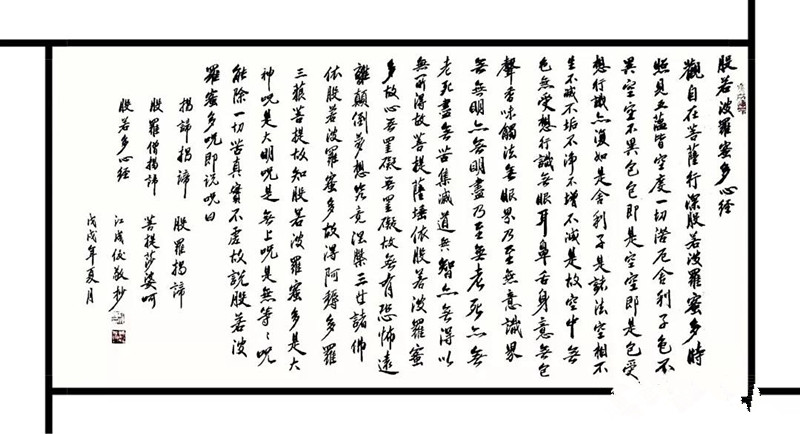 般若波羅蜜多心經
觀自在菩薩行深般若波羅蜜多時
照見五蘊皆空度一切苦厄舍利子色不
異空空不異色色即是空空即是色受
想行識亦復如是舍利子是諸法空相不
生不滅不垢不淨不增不減是故空中無
色無受想行識無眼耳鼻舌身意無色
聲香味觸法無眼界乃至無意識界
無無明亦無無明盡乃至無老死亦無
老死盡無苦集滅道無智亦無得以
無所得故菩提薩埵依般若波羅蜜
多故心無罣礙無罣礙故無有恐怖遠
離顛倒夢想究竟涅槃三世諸佛
依般若波羅蜜多故得阿耨多羅
三藐菩提故知般若波羅蜜多是大
神呪是大明呪是無上呪是無等々呪
能除一切苦真實不虛故說般若波
羅蜜多呪即說呪曰
揭諦揭諦 般羅揭諦
般羅僧揭諦 菩提莎婆呵
般若多心經 江成俊敬抄
戊戌年夏月